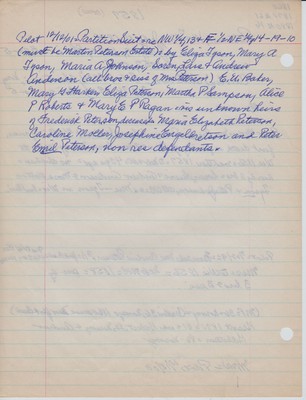 Pilot 12/12/01 Partition Suit re NW 1/4 13 & E 1/2 NE 1/4 14-19-10
(must be Martin Peterson Estate) by Eliza Tyson, Mary A
Tyson, Maria A Johnson, Soren, Jens & Andrew
Anderson (all bros & sis of Peterson) E. W. Baker,
Mary G Harker, Eliza Peterson, Martha P Sampson, Alice
P Roberts & Mary E P Ragan vs unknown heirs
of Frederik Peterson, deceased Maria Elizabeth Peterson,
Caroline Moller, Josephine Engelbretson and Peter
Emil Peterson, non res defendants.